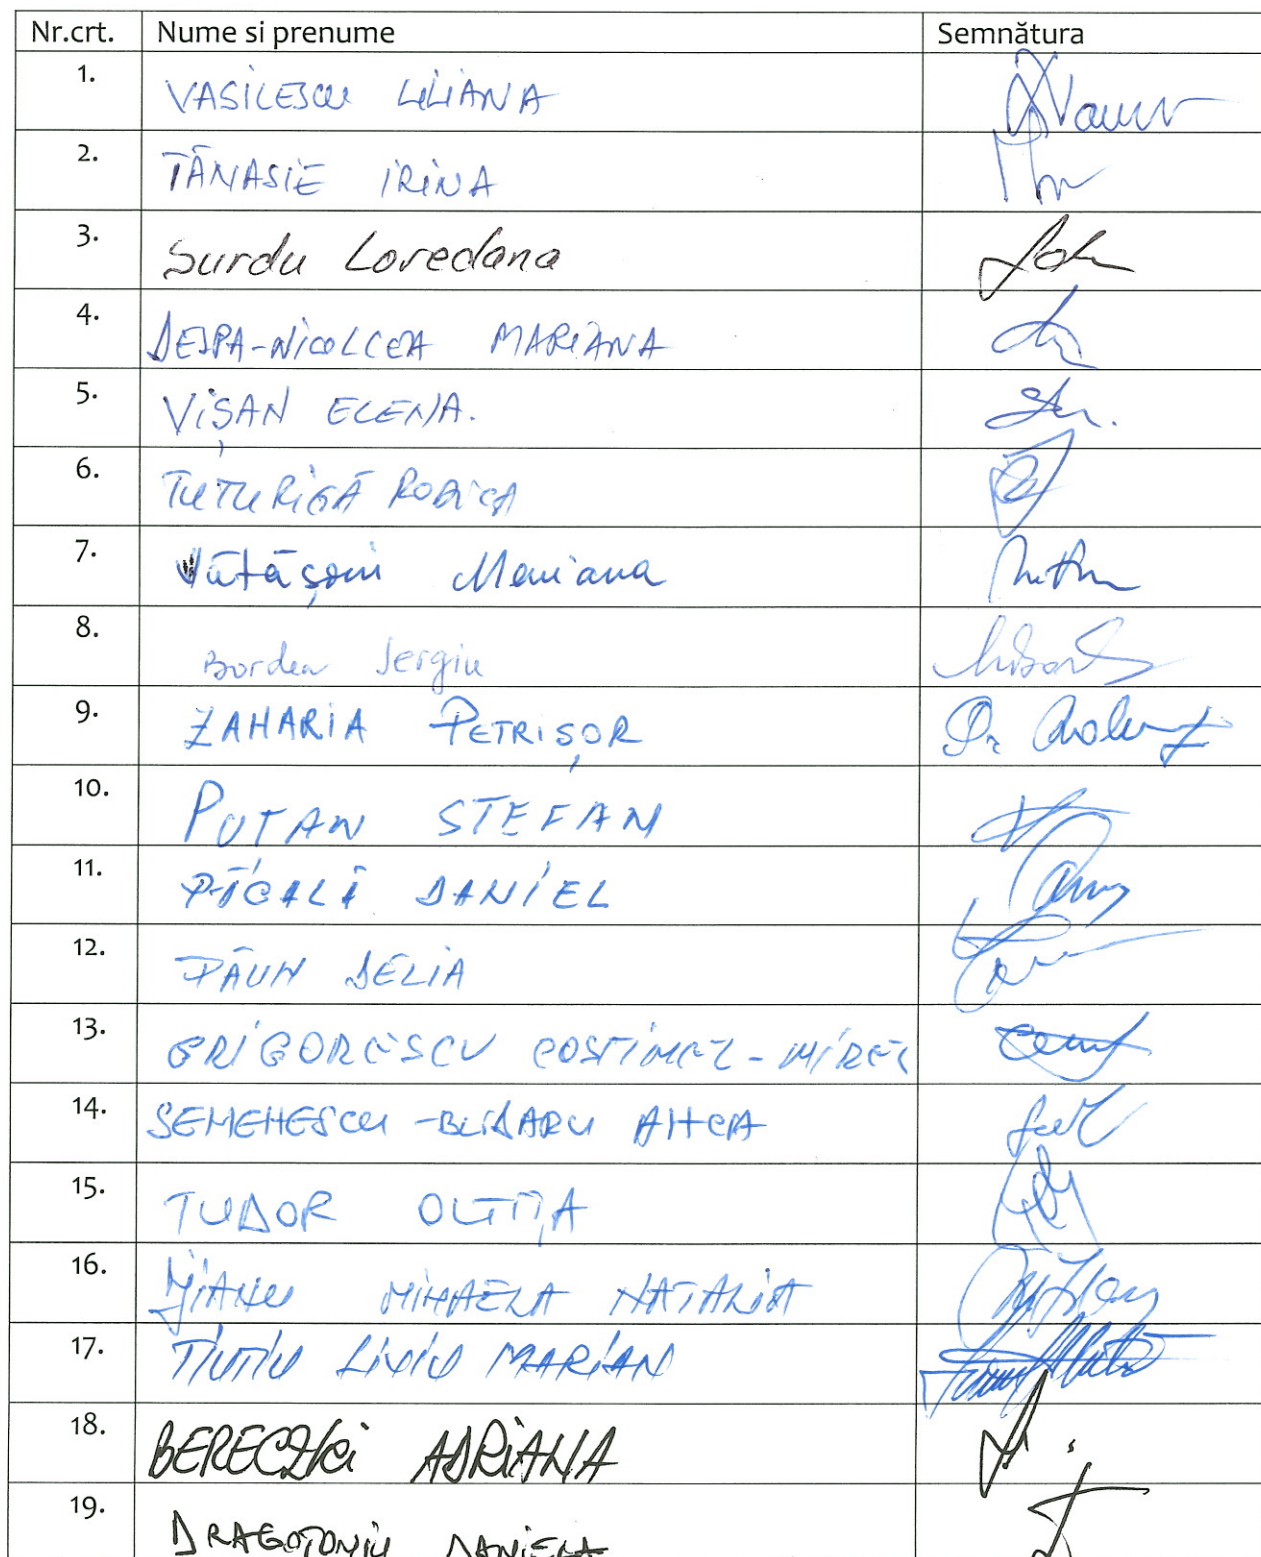 Nr.crt. Nume si prenume Semnătura
1. VASILESCU LILIANA
2. TĂNASIE IRINA
3. Surdu Loredana
4. DESPA-NICOLCEA MARIANA
5. VIȘAN ELENA.
6. TUTURIGĂ RODICA
7. Vătășoiu Mariana
8. Bordea Sergiu
9. ZAHARIA PETRIȘOR
10. PUTAN STEFAN
11. PÎCALĂ DANIEL
12. PĂUN DELIA
13. GRIGORESCU COSTINEL-MIREL
14. SEMENESCU-BLIDARU ANCA
15. TUDOR OLTIȚA
16. JIANU MIHAELA NATALIA
17. TIUTIU LIVIU MARIAN
18. BERECZKI ADRIANA
19. DRAGOTONIU DANIELA